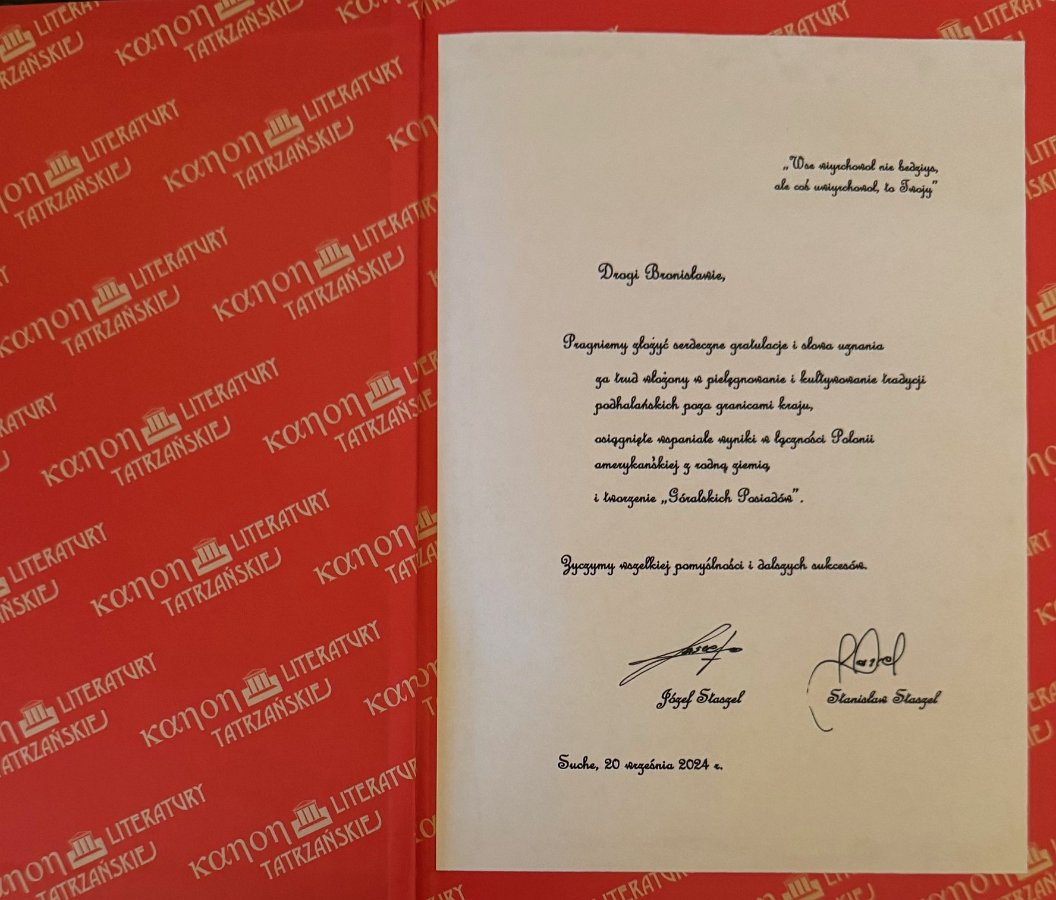 KANON LITERATURY TATRZAŃSKIEJ
„Wse wiyrchowoł nie bedziys,
ale coś uwiyrchowoł, to Twojy”
Drogi Bronisławie,
Pragniemy złożyć serdeczne gratulacje i słowa uznania
za trud włożony w pielęgnowanie i kultywowanie tradycji
podhalańskich poza granicami kraju,
osiągnięte wspaniałe wyniki w łączności Polonii
amerykańskiej z rodną ziemią,
i tworzenie „Góralskich Posiadów”.
Życzymy wszelkiej pomyślności i dalszych sukcesów.
Józef Staszel
Stanisław Staszel
Suche, 20 września 2024 r.